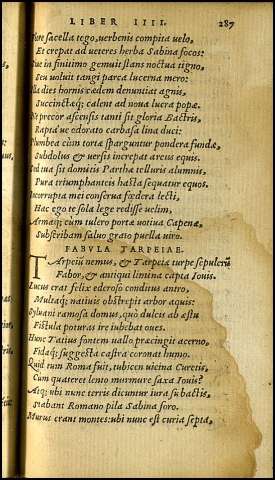 LIBER IIII. 287
Flore sacella tego, uerbenis compita uelo,
Et crepat ad ueteres herba Sabina focos:
Siue in finitimo gemuit stans noctua tigno,
Seu uoluit tangi parca lucerna mero:
Illa dies hornis cædem denuntiat agnis,
Succinctæq; calent ad noua lucra popæ.
Ne precor ascensis tanti sit gloria Bactris,
Rapta'ue odorato carbasa lina duci:
Plumbea cùm tortæ sparguntur pondera fundæ,
Subdolus & uersis increpat arcus equis.
Sed tua sic domitis Parthæ telluris alumnis,
Pura triumphanteis hasta sequatur equos.
Incorrupta mei conserua fœdera lecti,
Hac ego te sola lege redisse uelim,
Armaq; cùm tulero portæ uotiua Capenæ,
Subscribam saluo grato puella uiro.
FABVLA TARPEIAE.
TArpeiũ nemus, & Tarpeiæ turpe sepulcrũ
Fabor, & antiqui limina capta Iouis.
Lucus erat felix ederoso conditus antro,
Multaq; natiuis obstrepit arbor aquis:
Syluani ramosa domus, quò dulcis ab æstu
Fistula poturas ire iubebat oues.
Hunc Tatius fontem uallo præcingit acerno,
Fidaq; suggesta castra coronat humo.
Quid tum Roma fuit, tubicen uicina Curetis,
Cum quateret lento murmure saxa Iouis?
Atq; ubi nunc terris dicuntur iura subactis,
Stabant Romano pila Sabina foro.
Murus erant montes: ubi nunc est curia septa,